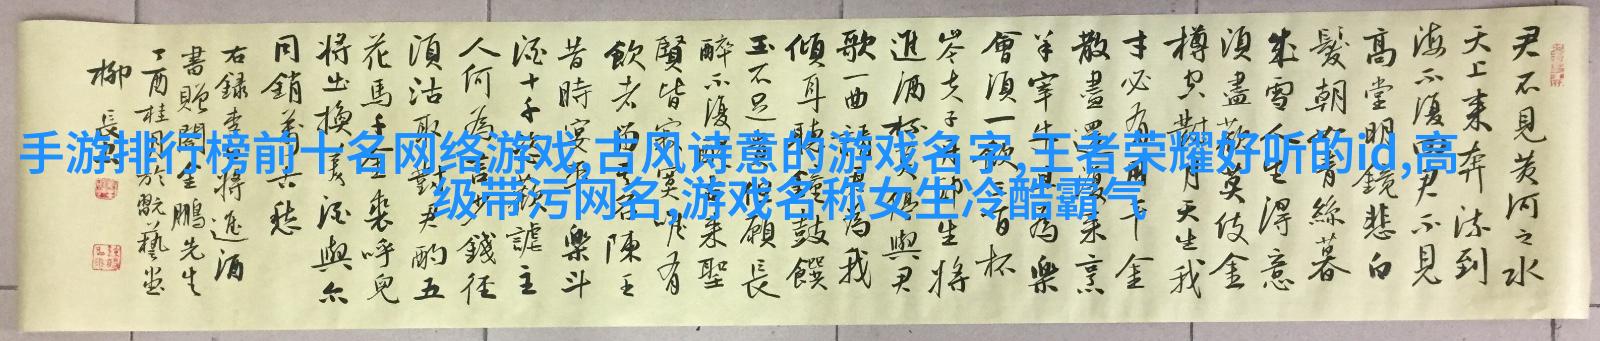 手游排行榜前十名网络游戏,古风诗意的游戏名字,王者荣耀好听的id,高
级带污网名,游戏名称女生冷酷霸气
君不見黃河之水
天上来奔流到
海不復回君不見
高堂明鏡悲白
髮朝如青絲暮
成雪人生得意
須盡歡莫使金
樽空對月天生我
才必有用千金
散盡還復来烹
羊宰牛且為樂
會須一飲三百杯
岑夫子丹邱生將
進酒杯莫停與君
歌一曲請君為我
傾耳聽鐘鼓饌
玉不足貴但願長
醉不復醒古来聖
賢皆寂寞唯有
飲者留其名陳王
昔時宴平樂斗
酒十千恣歡謔主
人何為言少錢徑
須沽取對君酌五
花馬千金裘呼兒
將出換美酒與尔
同銷萬古愁
右録李白將進酒
書贈金鵬先生
丁酉桂月於翫藝堂
柳長